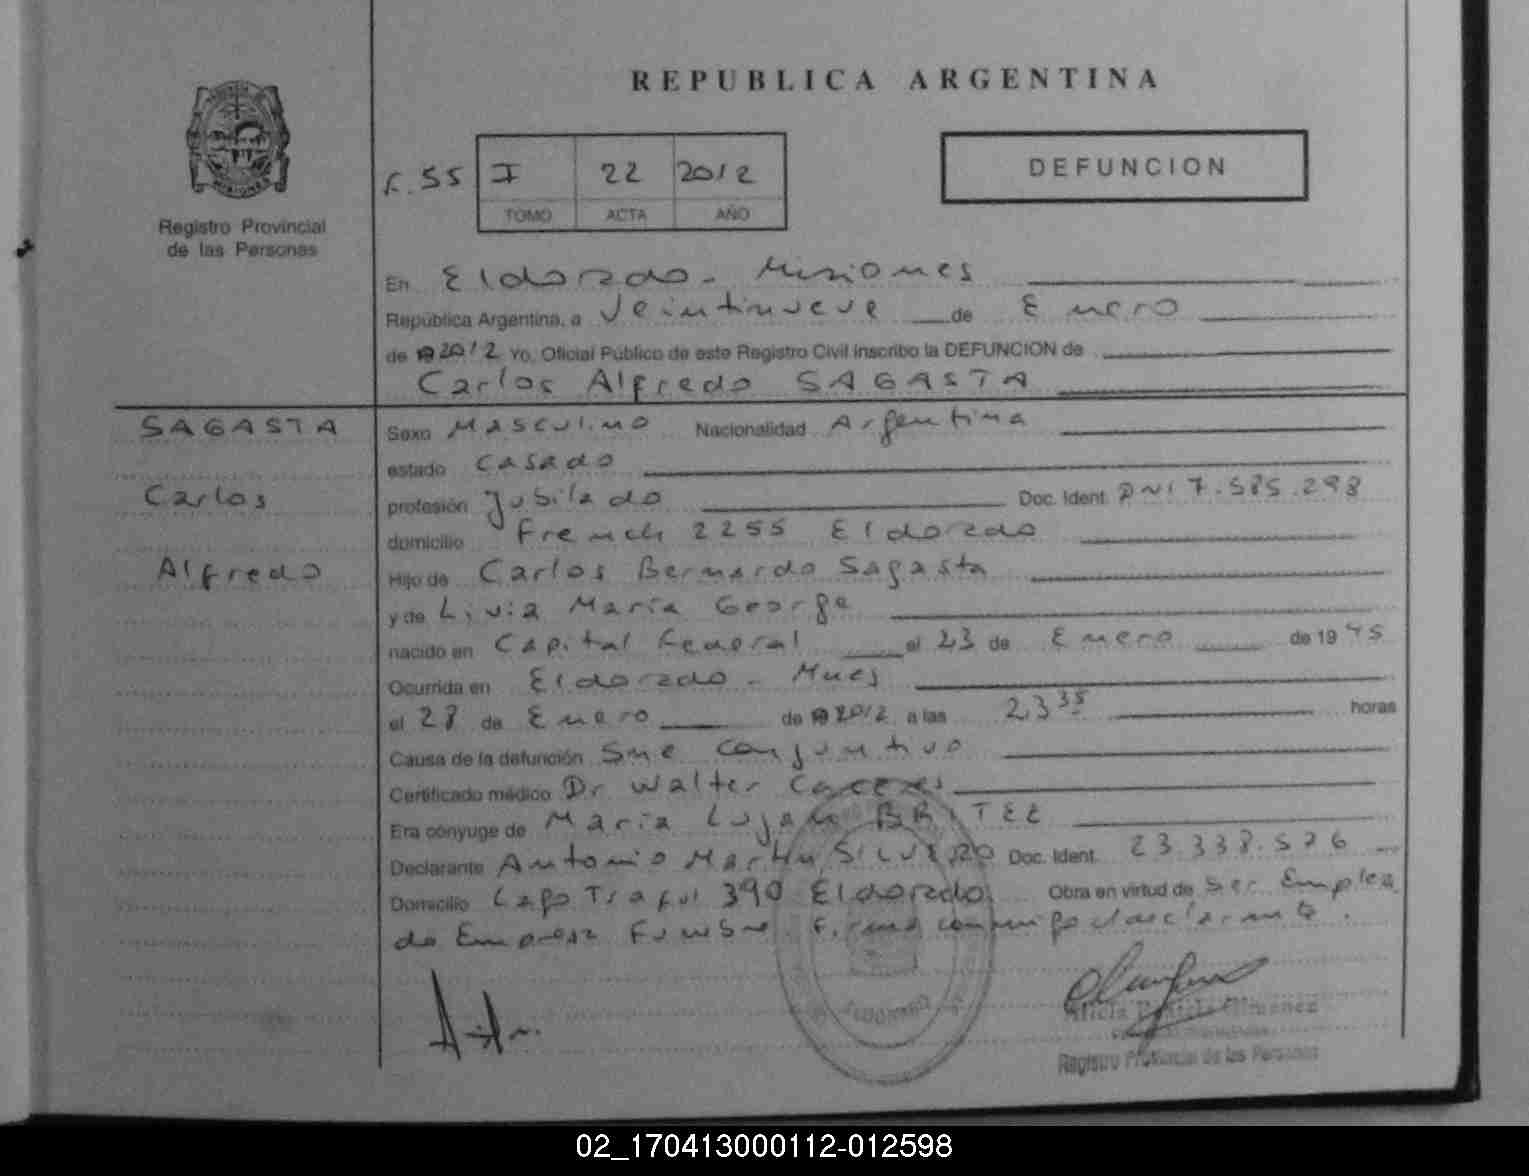 REPUBLICA ARGENTINA
MISIONES
Registro Provincial
de las Personas
F. 55 I 22 2012
TOMO ACTA AÑO
DEFUNCION
En Eldorado - Misiones
República Argentina, a Veintinueve de Enero
de 2012 Yo, Oficial Público de este Registro Civil inscribo la DEFUNCION de
Carlos Alfredo SAGASTA
SAGASTA
Carlos
Alfredo
Sexo Masculino Nacionalidad Argentina
estado Casado
profesión Jubilado Doc. Ident. DNI 7.585.298
domicilio French 2255 Eldorado
Hijo de Carlos Bernardo Sagasta
y de Livia María George
nacido en Capital Federal el 23 de Enero de 1945
Ocurrida en Eldorado - Mnes
el 28 de Enero de 2012 a las 23 35 horas
Causa de la defunción
Certificado médico Dr Walter Caceres
Era cónyuge de María Lujan BRITEZ
Declarante Antonio Martin SILVERO Doc. Ident. 23.338.576
Domicilio Lago Traful 390 Eldorado Obra en virtud de Ser Emplea
do Empresa Funebre. Firma conmigo el declarante.
ELDORADO
Alicia Gimenez
Registro Provincial de las Personas
02_170413000112-012598